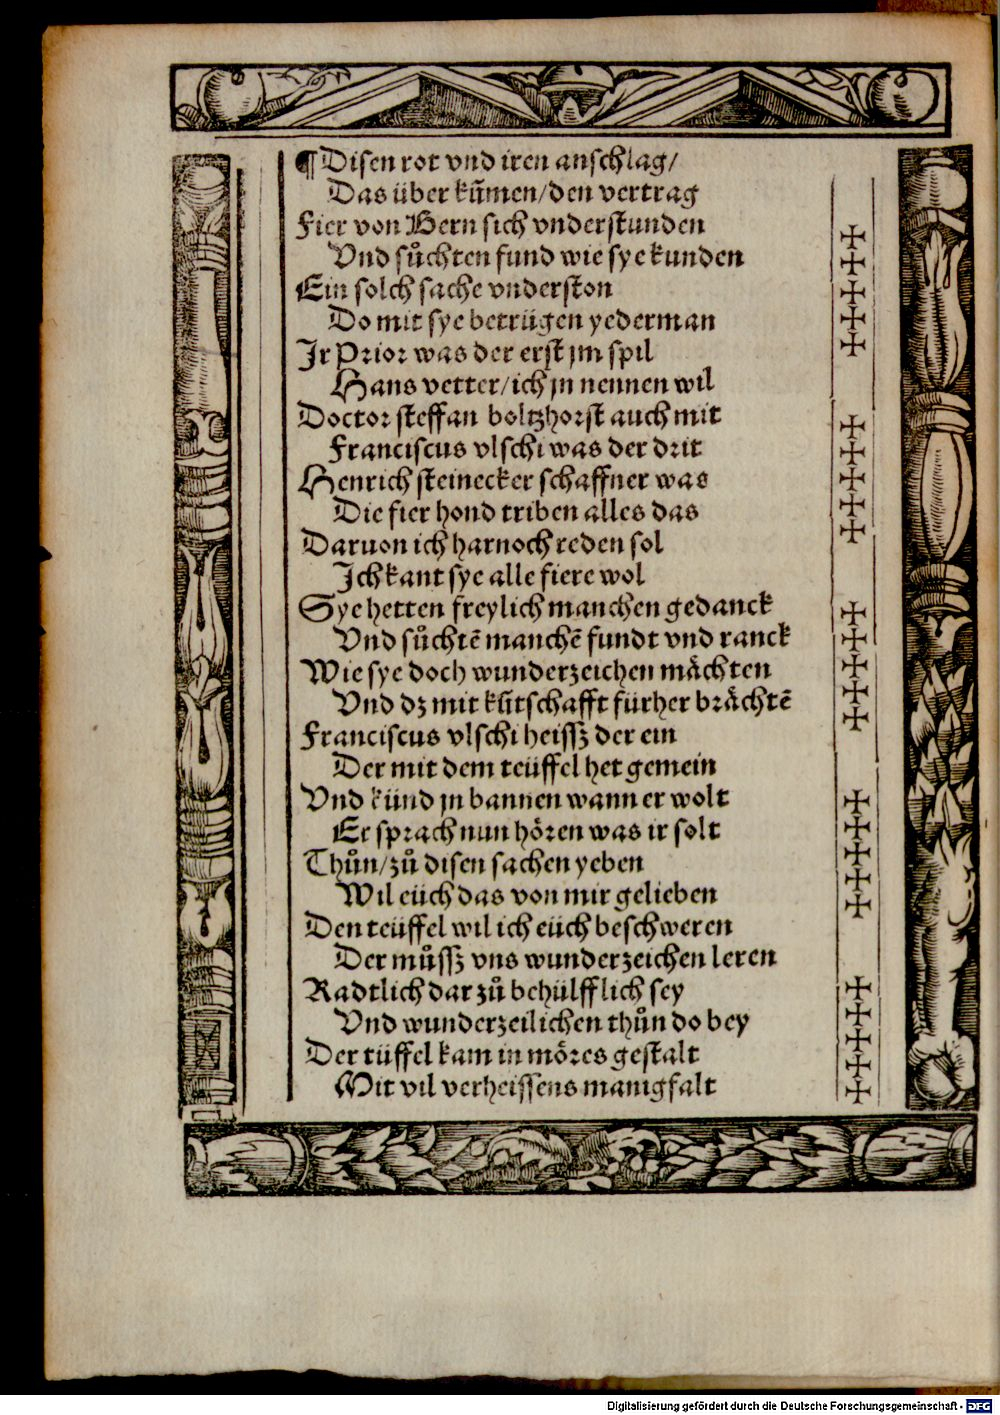 ¶ Disen rot vnd iren anschlag/
Das über kūmen/den vertrag
Fier von Bern sich vnderstunden
Vnd sůchten fund wie sye kunden
Ein solch sache vnderston
Do mit sye betrügen yederman
Jr Prior was der erst jm spil
Hans vetter/ich jn nennen wil
Doctor steffan boltzhorst auch mit
Franciscus vlschi was der drit
Henrich steinecker schaffner was
Die fier hond triben alles das
Daruon ich harnoch reden sol
Jch kant sye alle fiere wol
Sye hetten freylich manchen gedanck
Vnd sůchtē manchē fundt vnd ranck
Wie sye doch wunderzeichen mächten
Vnd dz mit kūtschafft fürher brächtē
Franciscus vlschi heissz der ein
Der mit dem teüffel het gemein
Vnd künd jn bannen wann er wolt
Er sprach nun hören was ir solt
Thůn/zů disen sachen yeben
Wil eüch das von mir gelieben
Den teüffel wil ich eüch beschweren
Der můssz vns wunderzeichen leren
Radtlich dar zů behülfflich sey
Vnd wunderzeilichen thůn do bey
Der tüffel kam in möres gestalt
Mit vil verheissens manigfalt
Digitalisierung gefördert durch die Deutsche Forschungsgemeinschaft - DFG